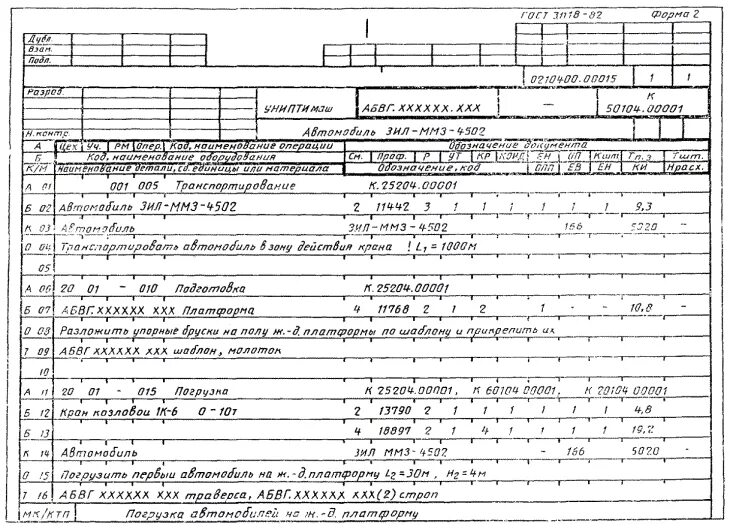 ГОСТ 3.1118-82 Форма 2
Дубл.
Взам.
Подл.
0210400.00015 1 1
Разраб.
УНИПТИмаш АБВГ.XXXXXX.XXX — К 50104.00001
Н.контр.
Автомобиль ЗИЛ-ММЗ-4502
А Цех Уч. РМ Опер. Код, наименование операции Обозначение документа
Б Код, наименование оборудования См. Проф. Р УТ КР КОИД ЕН ОП Кшт Тп.з Тшт.
К/М Наименование детали, сб. единицы или материала Обозначение, код ОПП ЕВ ЕН КИ Нрасх.
А 01 001 005 Транспортирование К.25204.00001
Б 02 Автомобиль ЗИЛ-ММЗ-4502 2 11442 3 1 1 1 1 1 9,3
К 03 Автомобиль ЗИЛ-ММЗ-4502 166 5020 -
О 04 Транспортировать автомобиль в зону действия крана ! L1 = 1000м
05
А 06 20 01 - 010 Подготовка К.25204.00001
Б 07 АБВГ.XXXXXX XXX Платформа 4 11768 2 1 2 1 - 10,8 -
О 08 Разложить упорные бруски на полу ж.-д. платформы по шаблону и прикрепить их
Т 09 АБВГ XXXXXX XXX шаблон, молоток
10
А 11 20 01 - 015 Погрузка К 25204.00001, К 60104 00001, К 20104 00001
Б 12 Кран козловой 1К-6 0-10т 2 13790 2 1 1 1 1 1 4,8
Б 13 4 18897 2 1 4 1 1 1 19,2
К 14 Автомобиль ЗИЛ ММЗ-4502 - 166 5020 -
О 15 Погрузить первый автомобиль на ж.-д. платформу L2 = 30м, H2 = 4м
Т 16 АБВГ XXXXXX XXX траверса, АБВГ.XXXXXX XXX(2) строп
МК/КТП Погрузка автомобилей на ж.-д. платформу